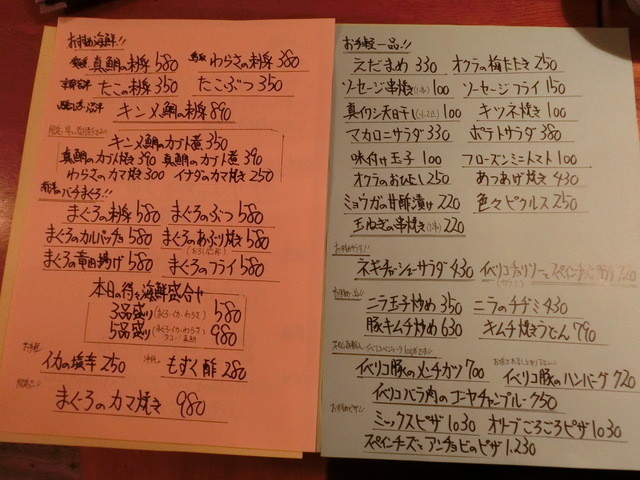 おすすめ海鮮!!
愛媛 真鯛の刺身 580 鳥取 わらさの刺身 380
たこの刺身 350 たこぶつ 350
キンメ鯛の刺身 890
キンメ鯛のカブト煮 350
真鯛のカブト焼き 390 真鯛のカブト煮 390
わらさのカマ焼き 300 イナダのカマ焼き 250
バチまぐろ!!
まぐろの刺身 580 まぐろのぶつ 580
まぐろのカルパッチョ 580 まぐろのあぶり焼き 580
まぐろの竜田揚げ 580 まぐろのフライ 580
本日の得々海鮮盛合せ
3品盛り(まぐろ・イカ・わらさ) 580
5品盛り 980
お手軽 イカの塩辛 250 沖縄 もずく酢 280
まぐろのカマ焼き 980
お手軽一品!!
えだまめ 330 オクラの梅たたき 250
ソーセージ串焼き(1本) 100 ソーセージフライ 150
真イワシ天日干し 100 キツネ焼き 100
マカロニサラダ 330 ポテトサラダ 380
味付け玉子 100 フローズンミニトマト 100
オクラのおひたし 250 あつあげ焼き 430
ミョウガの甘酢漬け 220 色々ピクルス 250
玉ねぎの串焼き(1本) 220
ネギチャーシューサラダ 430
ニラ玉子炒め 350 ニラのチヂミ 430
豚キムチ炒め 630 キムチ焼きうどん 790
イベリコ豚のメンチカツ 700 イベリコ豚のハンバーグ 720
イベリコバラ肉のゴーヤチャンプルー 750
ミックスピザ 1030 オリーブごろごろピザ 1030
スペインチーズとアンチョビのピザ 1,230